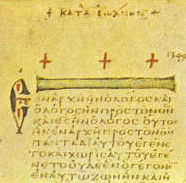 + ΚΑΤΑ ΙΩΑΝΝΗΝ +
1349
ΕΝΑΡΧΗΗΝΟΛΟΓΟCΚΑΙ
ΟΛΟΓΟCΗΝΠΡΟCΤΟΝΘΝ
ΚΑΙΘCΗΝΟΛΟΓΟCΟΥΤΟC
ΗΝΕΝΑΡΧΗΠΡΟCΤΟΝΘΝ
ΠΑΝΤΑΔΙΑΥΤΟΥΕΓΕΝΕ
ΤΟΚΑΙΧΩΡΙCΑΥΤΟΥΕΓΕ
ΝΕΤΟΟΥΔΕΕΝΟΓΕΓΟΝΕ
ΕΝΑΥΤΩΖΩΗΗΝΚΑΙΗ